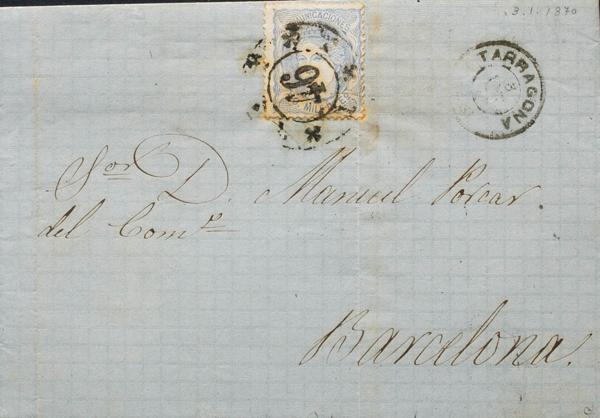 3.1.1870
COMUNICACIONES
46
TARRAGONA
3
Sor D. Manuel Porcar
del Como
Barcelona.